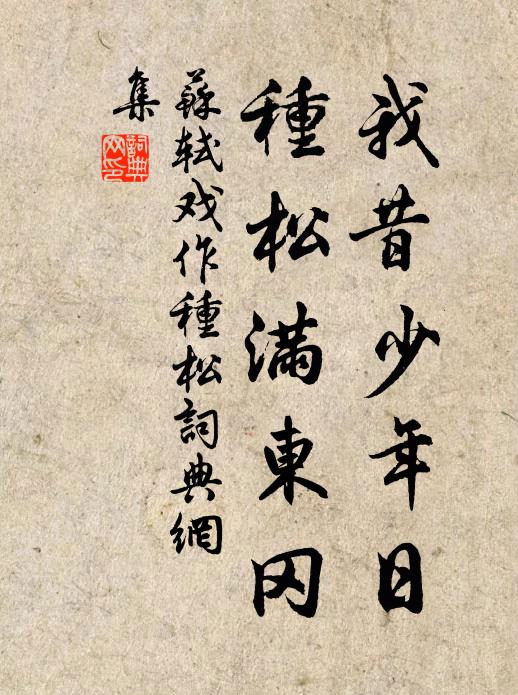 我昔少年日
種松滿東冈
蘇軾戏作種松詞典網
集
詞典
网印